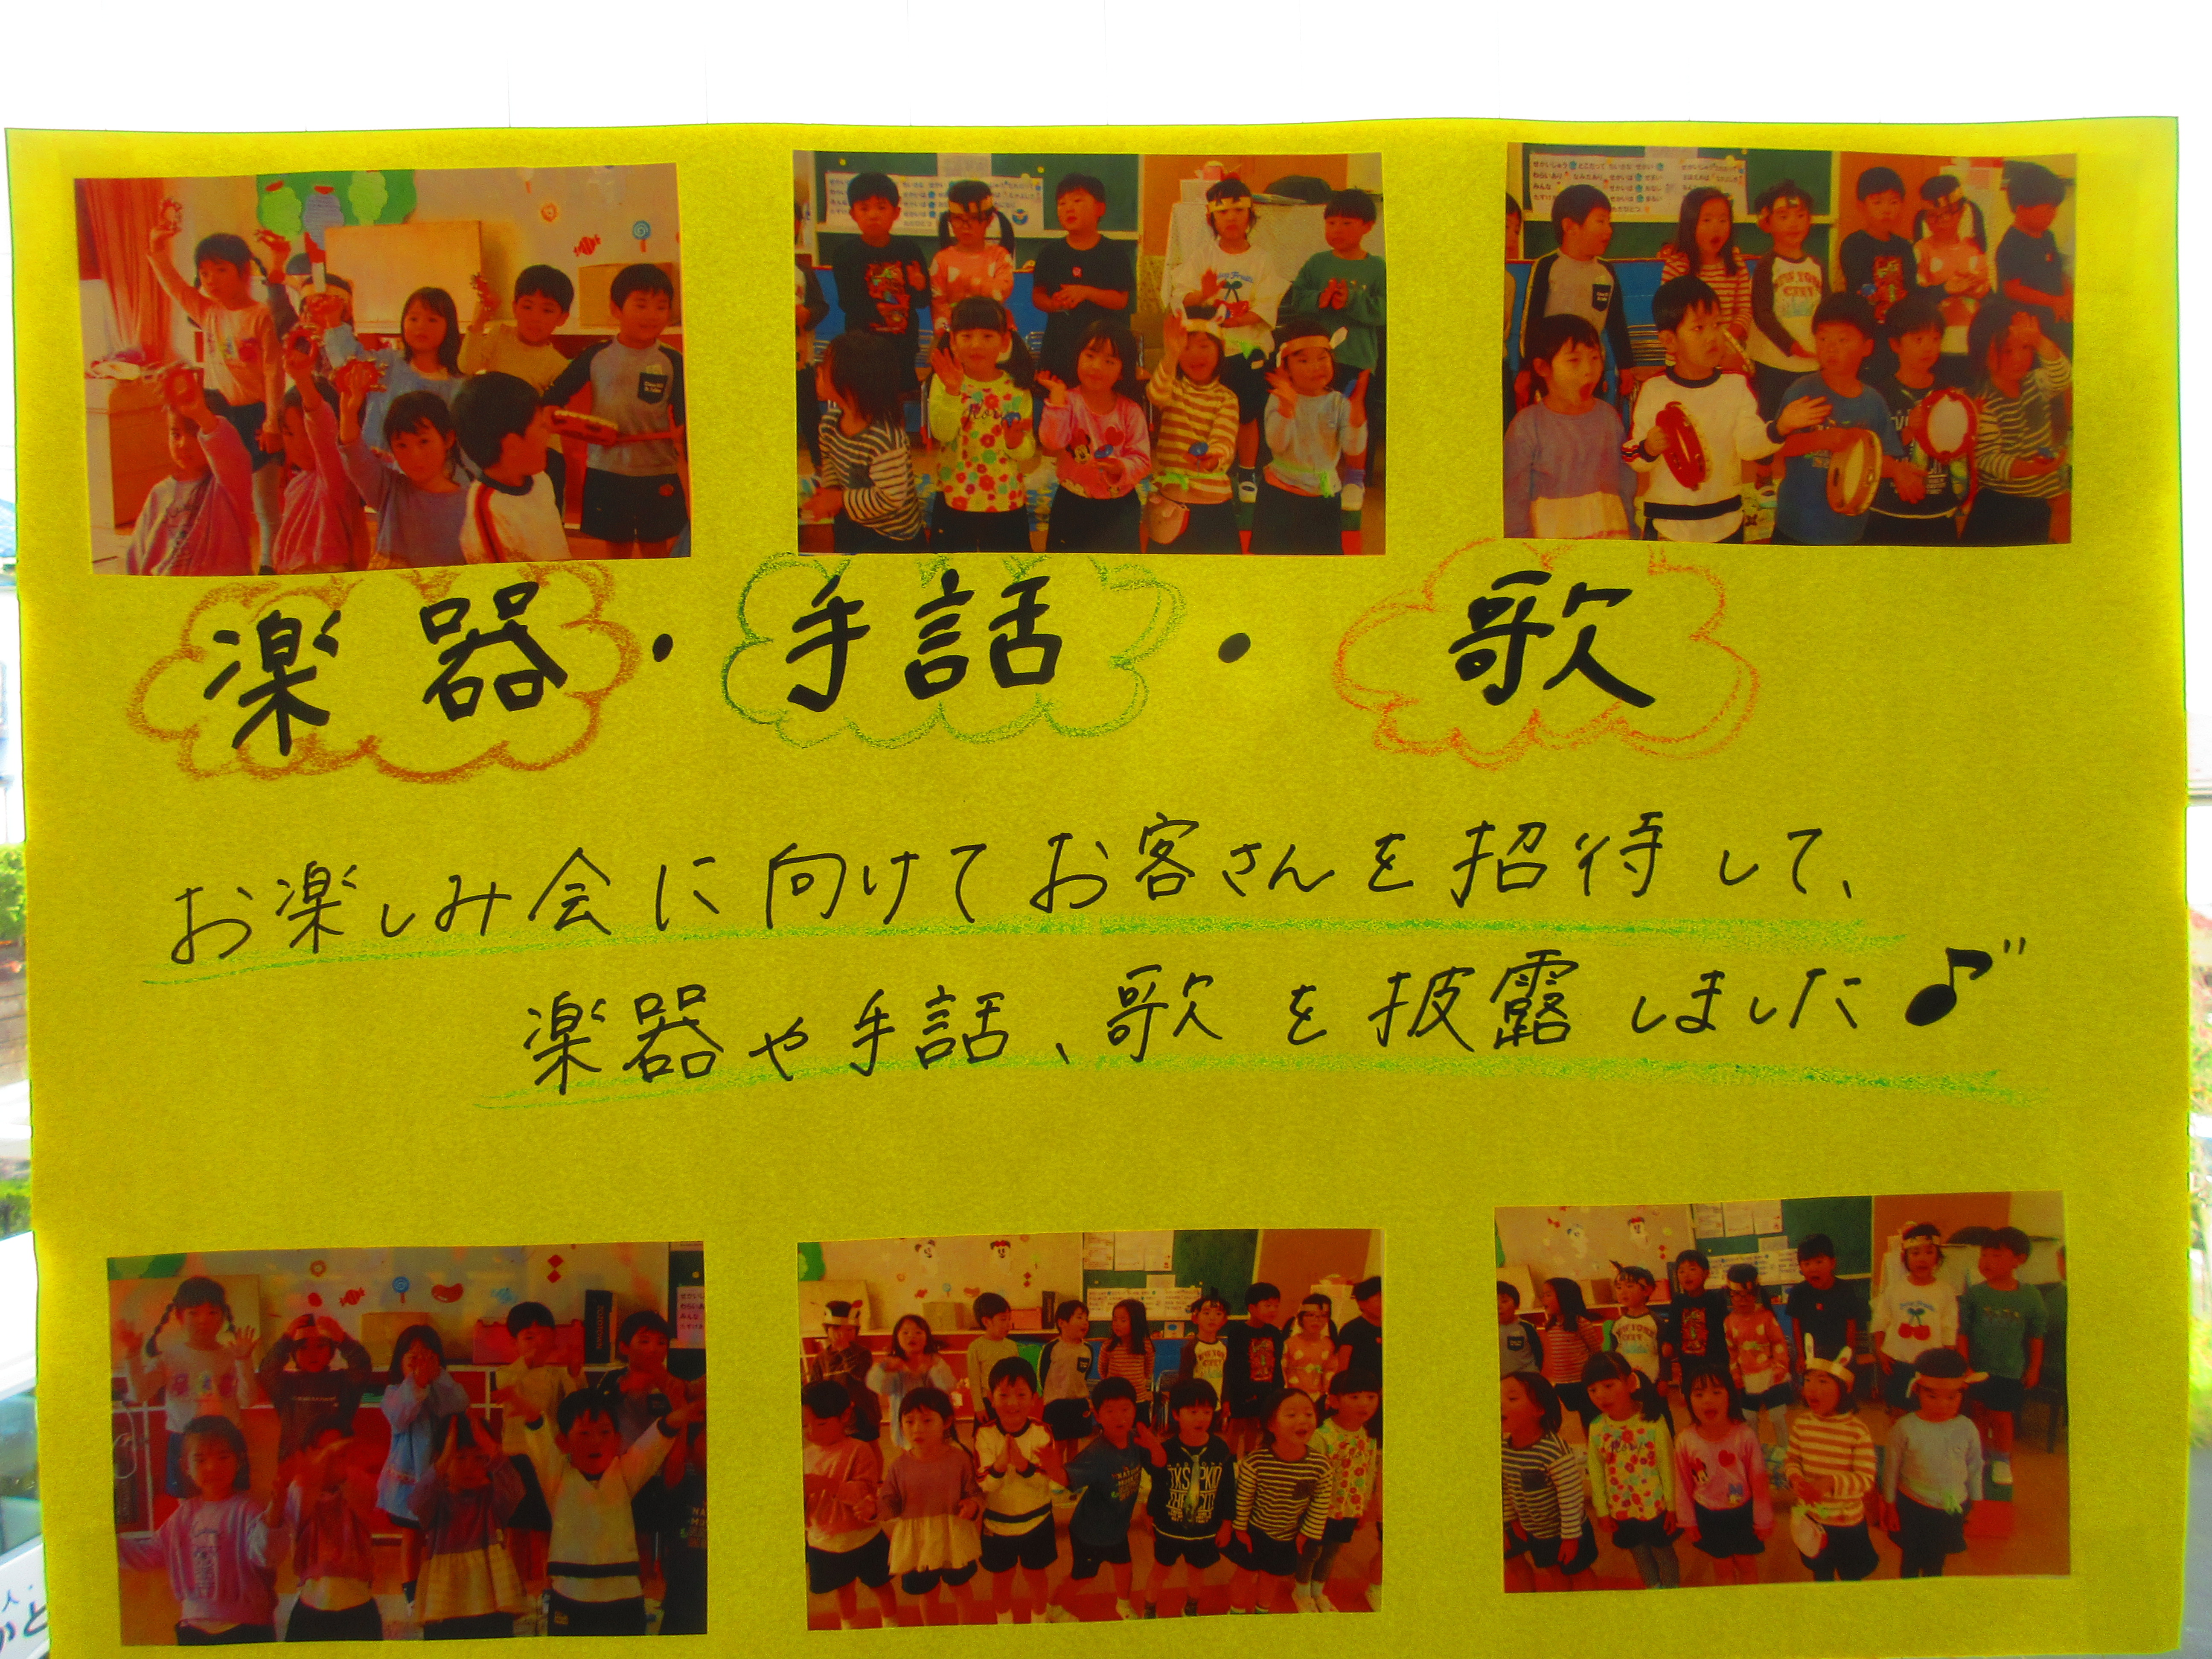 楽器・手話・歌
お楽しみ会に向けてお客さんを招待して、
楽器や手話、歌を披露しました♪"